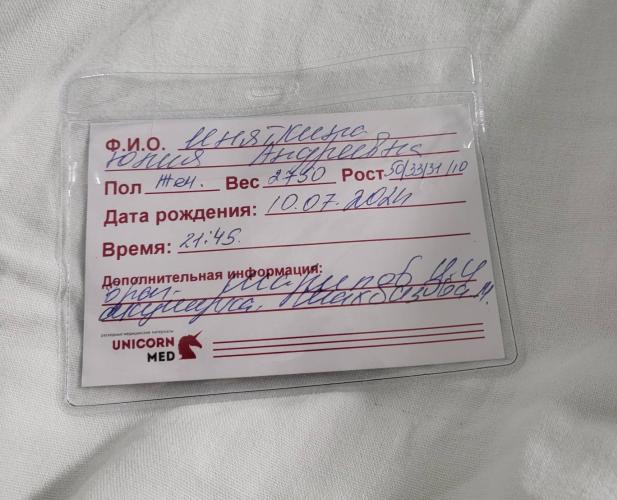 Ф.И.О. Иняткина
Юлия Андреевна
Пол Жен. Вес 2750 Рост 50/33/31/10
Дата рождения: 10.07.2024
Время: 21:45.
Дополнительная информация:
врач-
акушерка.
расходные медицинские материалы
UNICORN
MED